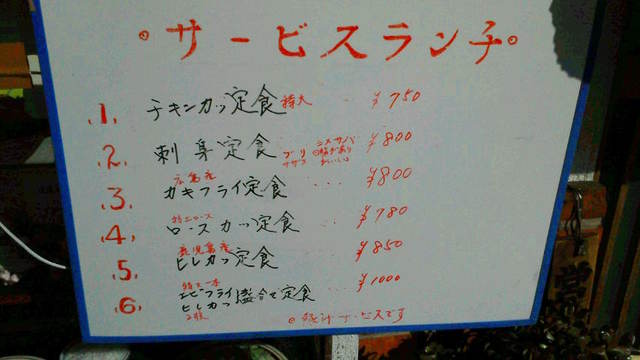 サービスランチ
1. チキンカツ定食 特大 ¥750
2. 刺身定食 ブリ サザエ ¥800
3. 広島産 カキフライ定食 ¥800
4. 特上ロース ロースカツ定食 ¥780
5. 鹿児島産 ヒレカツ定食 ¥850
6. 特大一本 エビフライ ヒレカツ 2枚 盛合せ定食 ¥1000
豚汁サービスです